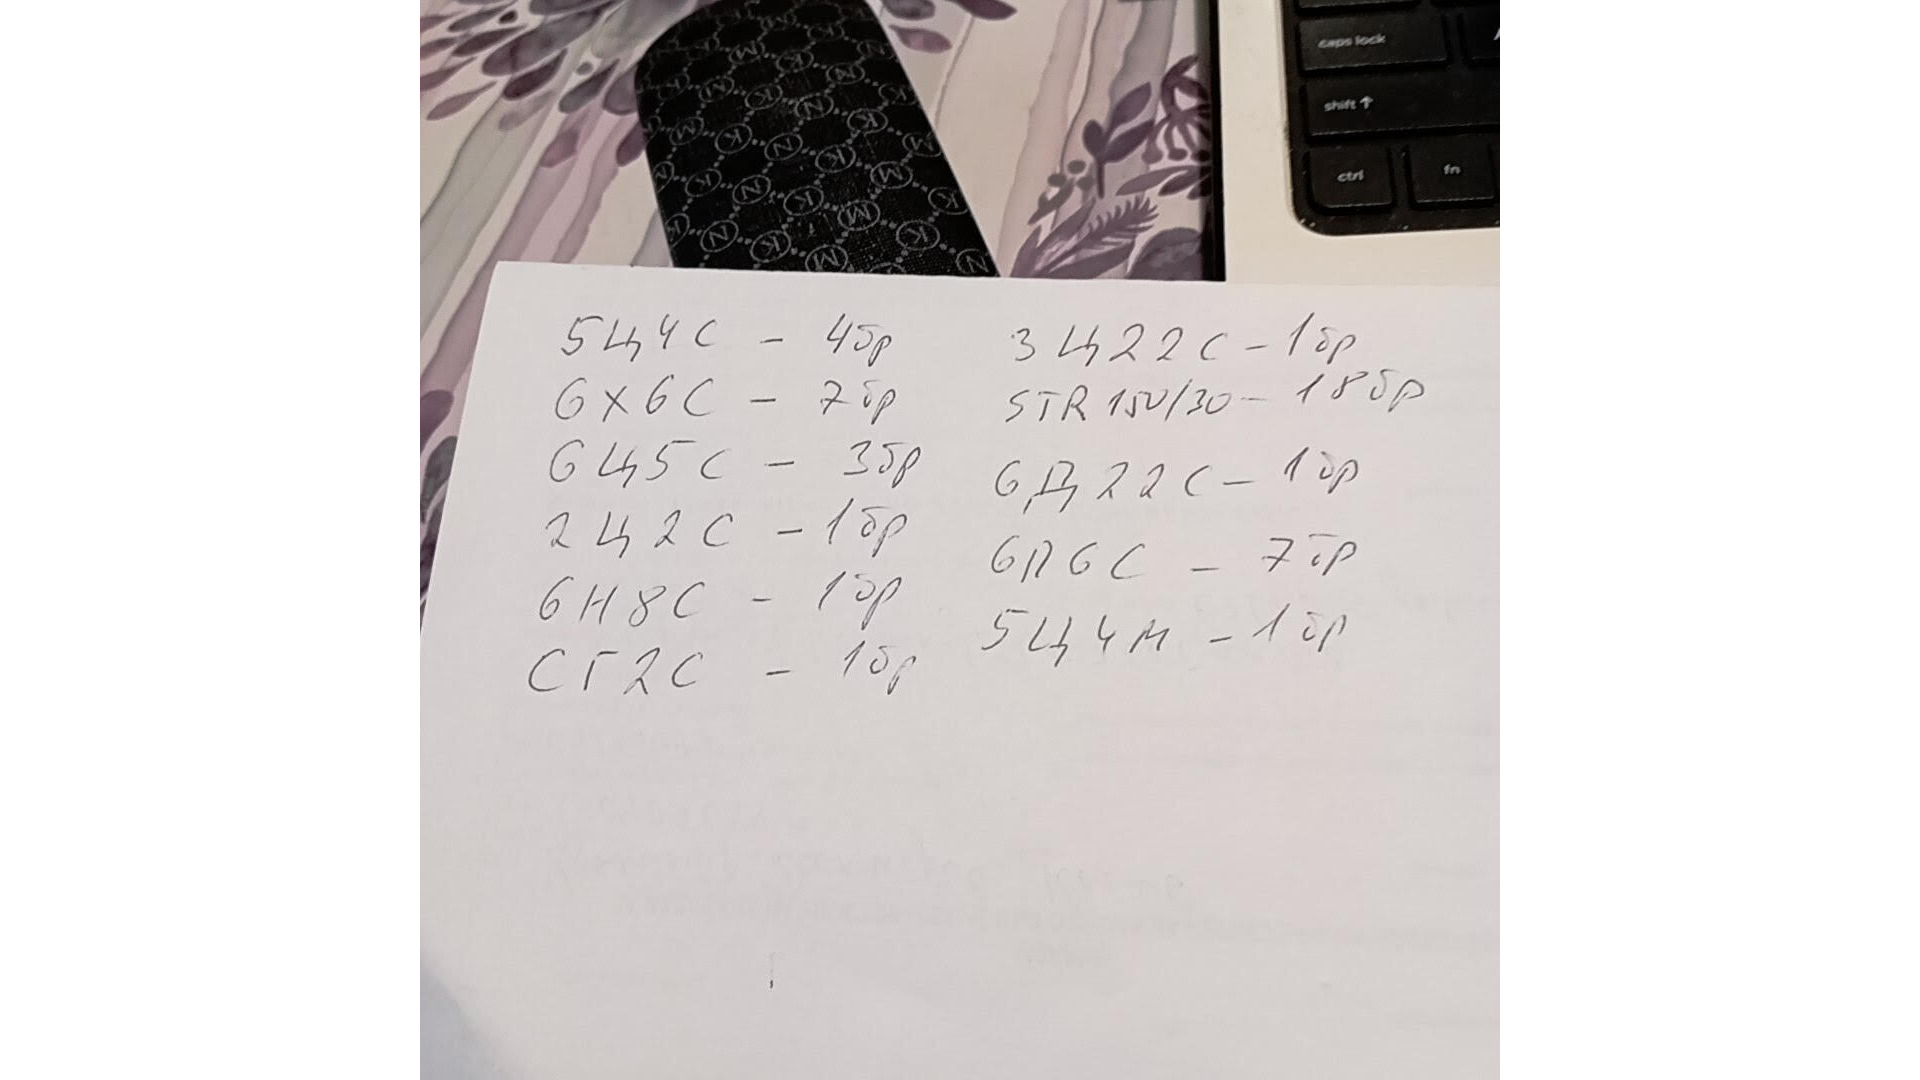 caps lock
shift
ctrl
fn
5Ц4С - 4бр
6Х6С - 7бр
6Ц5С - 3бр
2Ц2С - 1бр
6Н8С - 1бр
СГ2С - 1бр
3Ц22С - 1бр
STR 150/30 - 18бр
6Д22С - 1бр
6П6С - 7бр
5Ц4М - 1бр